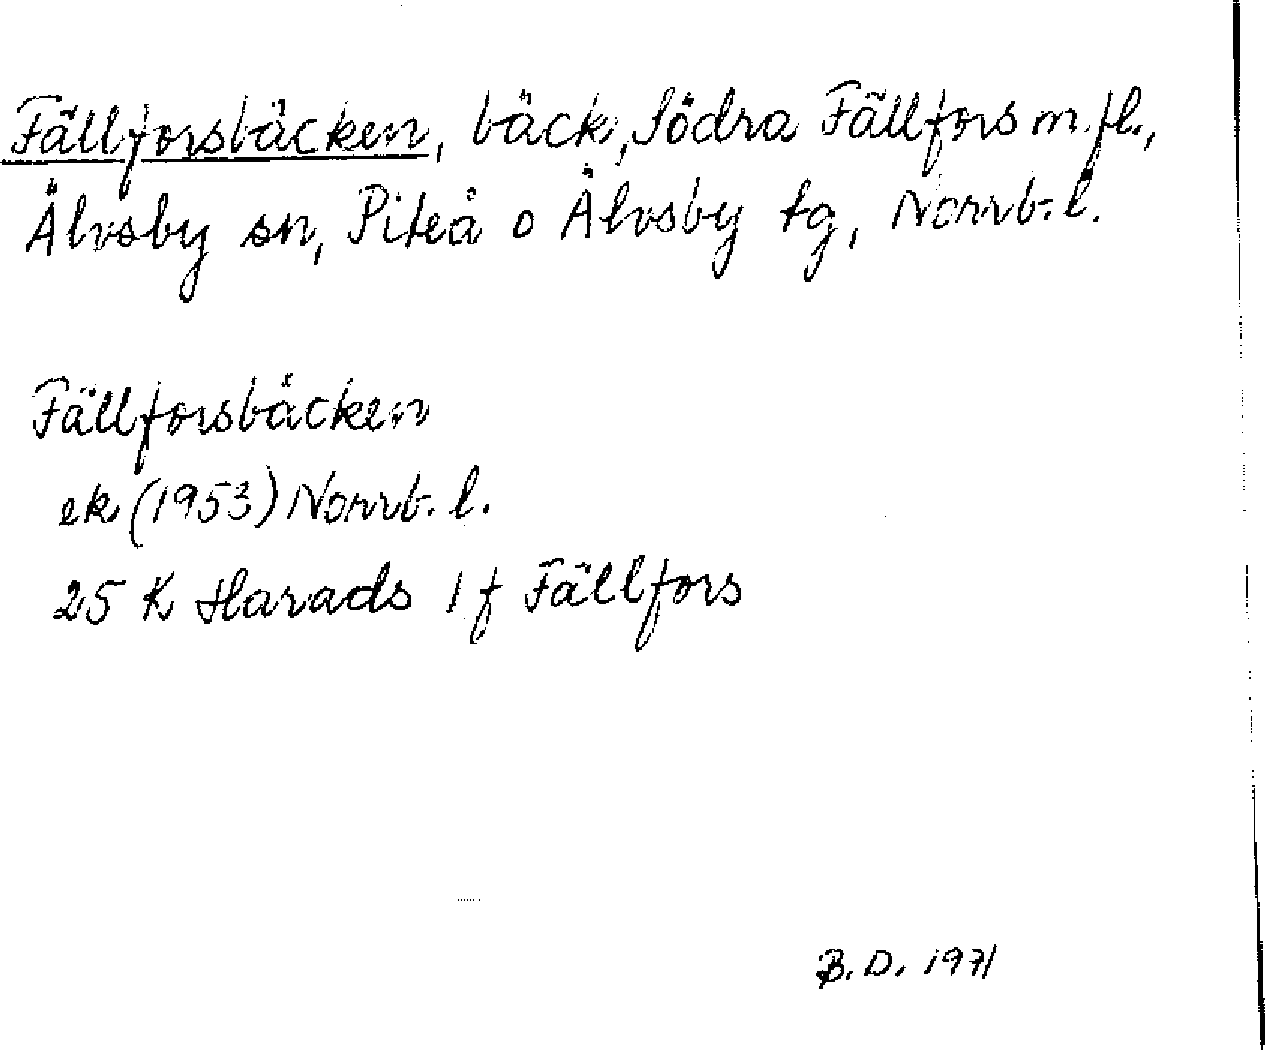 Fällforsbäcken, bäck, Södra Fällfors m.fl.,
Älvsby sn, Piteå o Älvsby tg, Norrb. l.
Fällforsbäcken
ek. (1953) Norrb. l.
25 K Harads 1 f Fällfors
B.D. 1971